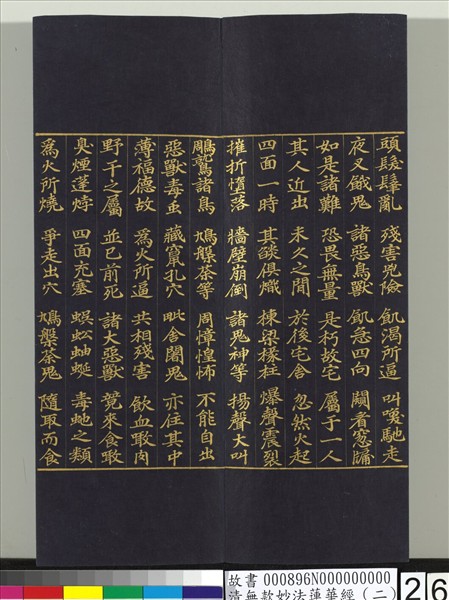 頭髮髼亂 殘害兇險 飢渴所逼 叫喚馳走
夜叉餓鬼 諸惡鳥獸 飢急四向 闚看窓牖
如是諸難 恐畏無量 是朽故宅 屬于一人
其人近出 未久之間 於後宅舍 忽然火起
四面一時 其燄俱熾 棟梁椽柱 爆聲震裂
摧折墮落 牆壁崩倒 諸鬼神等 揚聲大叫
鵰鷲諸鳥 鳩槃荼等 周慞惶怖 不能自出
惡獸毒虫 藏竄孔穴 毗舍闍鬼 亦住其中
薄福德故 為火所逼 共相殘害 飲血噉肉
野干之屬 並已前死 諸大惡獸 競來食噉
臭煙蓬㶿 四面充塞 蜈蚣蚰蜒 毒虵之類
為火所燒 爭走出穴 鳩槃荼鬼 隨取而食
故書 000896N000000000
清無款妙法蓮華經(二)
26